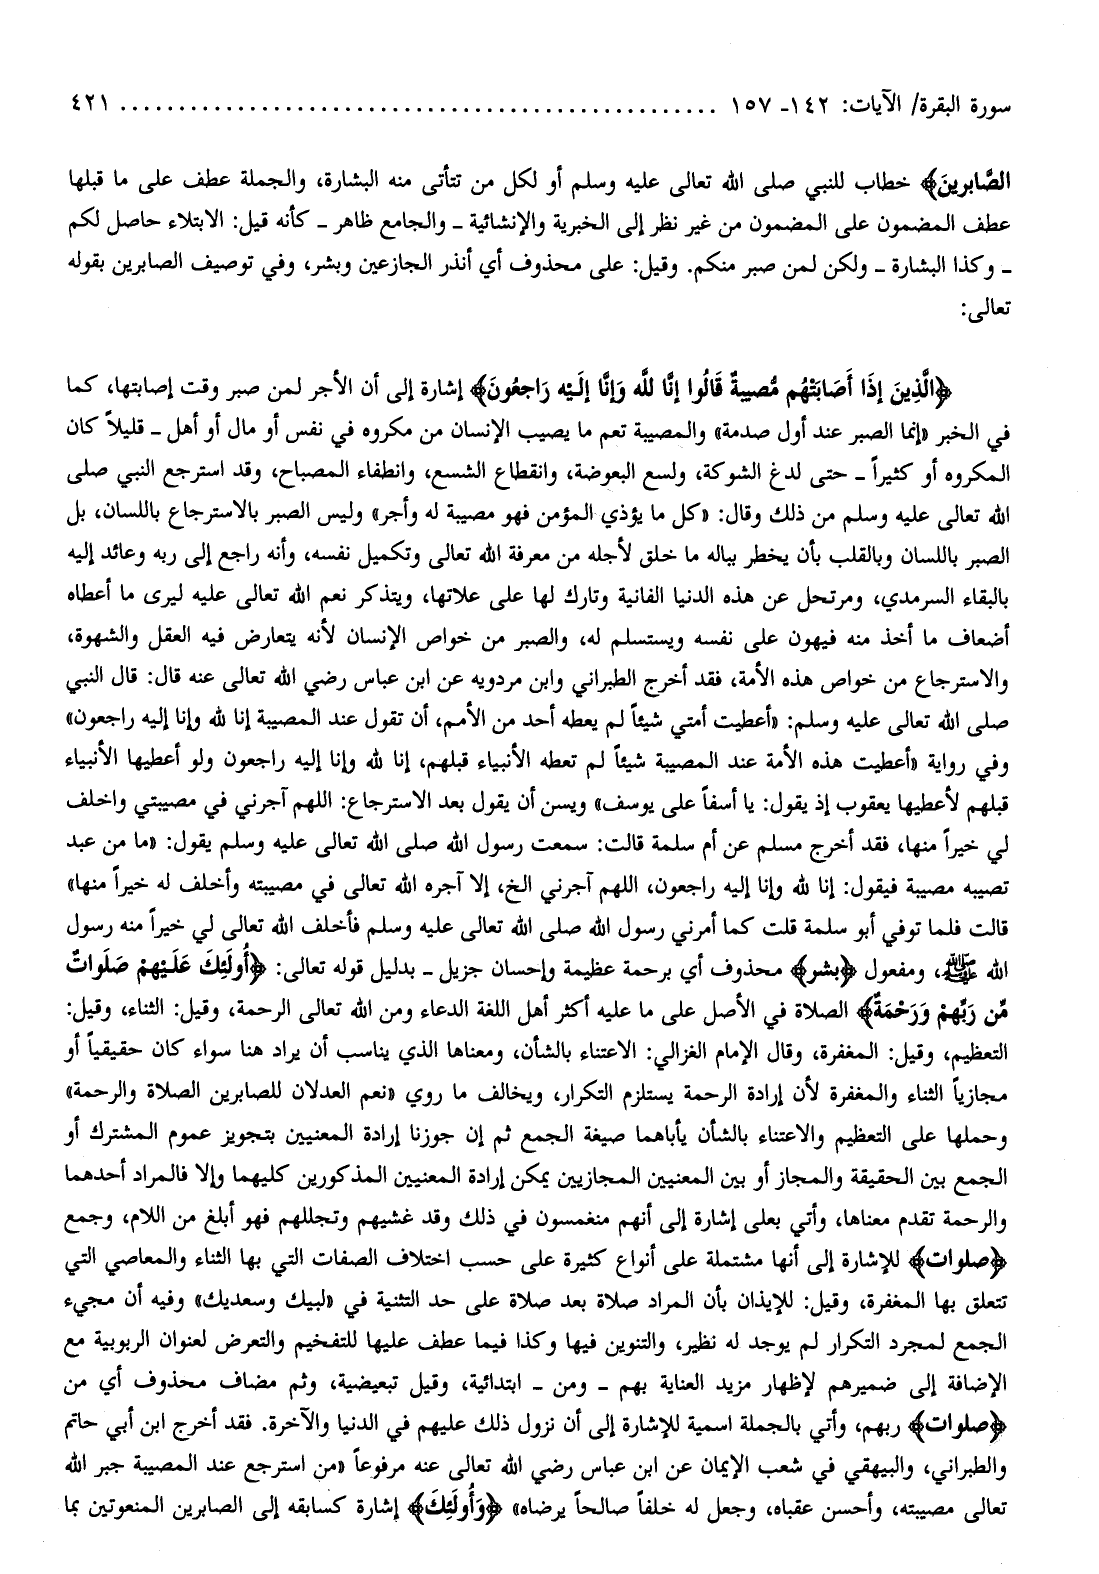 سورة البقرة/ الآيات: ١٤٢ـ ١٥٧ .................................................... ٤٢١
الصَّابرينَ﴾ خطاب للنبي صلى الله تعالى عليه وسلم أو لكل من تتأتى منه البشارة، والجملة عطف على ما قبلها
عطف المضمون على المضمون من غير نظر إلى الخبرية والإنشائية ـ والجامع ظاهر ـ كأنه قيل: الابتلاء حاصل لكم
ـ وكذا البشارة ـ ولكن لمن صبر منكم. وقيل: على محذوف أي أنذر الجازعين وبشر، وفي توصيف الصابرين بقوله
تعالى:
﴿الَّذِينَ إِذَا أَصَابَتْهُم مُّصيبةٌ قَالُوا إِنَّا للَّه وَإِنَّا إِلَيْه رَاجعُونَ﴾ إشارة إلى أن الأجر لمن صبر وقت إصابتها، كما
في الخبر «إنما الصبر عند أول صدمة» والمصيبة تعم ما يصيب الإنسان من مكروه في نفس أو مال أو أهل ـ قليلاً كان
المكروه أو كثيراً ـ حتى لدغ الشوكة، ولسع البعوضة، وانقطاع الشسع، وانطفاء المصباح، وقد استرجع النبي صلى
الله تعالى عليه وسلم من ذلك وقال: «كل ما يؤذي المؤمن فهو مصيبة له وأجر» وليس الصبر بالاسترجاع باللسان، بل
الصبر باللسان وبالقلب بأن يخطر بباله ما خلق لأجله من معرفة الله تعالى وتكميل نفسه، وأنه راجع إلى ربه وعائد إليه
بالبقاء السرمدي، ومرتحل عن هذه الدنيا الفانية وتارك لها على علاتها، ويتذكر نعم الله تعالى عليه ليرى ما أعطاه
أضعاف ما أخذ منه فيهون على نفسه ويستسلم له، والصبر من خواص الإنسان لأنه يتعارض فيه العقل والشهوة،
والاسترجاع من خواص هذه الأمة، فقد أخرج الطبراني وابن مردويه عن ابن عباس رضي الله تعالى عنه قال: قال النبي
صلى الله تعالى عليه وسلم: «أعطيت أمتي شيئاً لم يعطه أحد من الأمم، أن تقول عند المصيبة إنا لله وإنا إليه راجعون»
وفي رواية «أعطيت هذه الأمة عند المصيبة شيئاً لم تعطه الأنبياء قبلهم، إنا لله وإنا إليه راجعون ولو أعطيها الأنبياء
قبلهم لأعطيها يعقوب إذ يقول: يا أسفاً على يوسف» ويسن أن يقول بعد الاسترجاع: اللهم آجرني في مصيبتي واخلف
لي خيراً منها، فقد أخرج مسلم عن أم سلمة قالت: سمعت رسول الله صلى الله تعالى عليه وسلم يقول: «ما من عبد
تصيبه مصيبة فيقول: إنا لله وإنا إليه راجعون، اللهم آجرني الخ، إلا آجره الله تعالى في مصيبته وأخلف له خيراً منها»
قالت فلما توفي أبو سلمة قلت كما أمرني رسول الله صلى الله تعالى عليه وسلم فأخلف الله تعالى لي خيراً منه رسول
الله ﷺ، ومفعول ﴿بشر﴾ محذوف أي برحمة عظيمة وإحسان جزيل ـ بدليل قوله تعالى: ﴿أُولَئِكَ عَلَيْهمْ صَلَواتٌ
مِّن رَبِّهمْ وَرَحْمَةٌ﴾ الصلاة في الأصل على ما عليه أكثر أهل اللغة الدعاء ومن الله تعالى الرحمة، وقيل: الثناء، وقيل:
التعظيم، وقيل: المغفرة، وقال الإمام الغزالي: الاعتناء بالشأن، ومعناها الذي يناسب أن يراد هنا سواء كان حقيقياً أو
مجازياً الثناء والمغفرة لأن إرادة الرحمة يستلزم التكرار، ويخالف ما روي «نعم العدلان للصابرين الصلاة والرحمة»
وحملها على التعظيم والاعتناء بالشأن يأباهما صيغة الجمع ثم إن جوزنا إرادة المعنيين بتجويز عموم المشترك أو
الجمع بين الحقيقة والمجاز أو بين المعنيين المجازيين يمكن إرادة المعنيين المذكورين كليهما وإلا فالمراد أحدهما
والرحمة تقدم معناها، وأتي بعلى إشارة إلى أنهم منغمسون في ذلك وقد غشيهم وتجللهم فهو أبلغ من اللام، وجمع
﴿صلوات﴾ للإشارة إلى أنها مشتملة على أنواع كثيرة على حسب اختلاف الصفات التي بها الثناء والمعاصي التي
تتعلق بها المغفرة، وقيل: للإيذان بأن المراد صلاة بعد صلاة على حد التثنية في «لبيك وسعديك» وفيه أن مجيء
الجمع لمجرد التكرار لم يوجد له نظير، والتنوين فيها وكذا فيما عطف عليها للتفخيم والتعرض لعنوان الربوبية مع
الإضافة إلى ضميرهم لإظهار مزيد العناية بهم ـ ومن ـ ابتدائية، وقيل تبعيضية، وثم مضاف محذوف أي من
﴿صلوات﴾ ربهم، وأتي بالجملة اسمية للإشارة إلى أن نزول ذلك عليهم في الدنيا والآخرة. فقد أخرج ابن أبي حاتم
والطبراني، والبيهقي في شعب الإيمان عن ابن عباس رضي الله تعالى عنه مرفوعاً «من استرجع عند المصيبة جبر الله
تعالى مصيبته، وأحسن عقباه، وجعل له خلفاً صالحاً يرضاه» ﴿وَأُولَئِكَ﴾ إشارة كسابقه إلى الصابرين المنعوتين بما